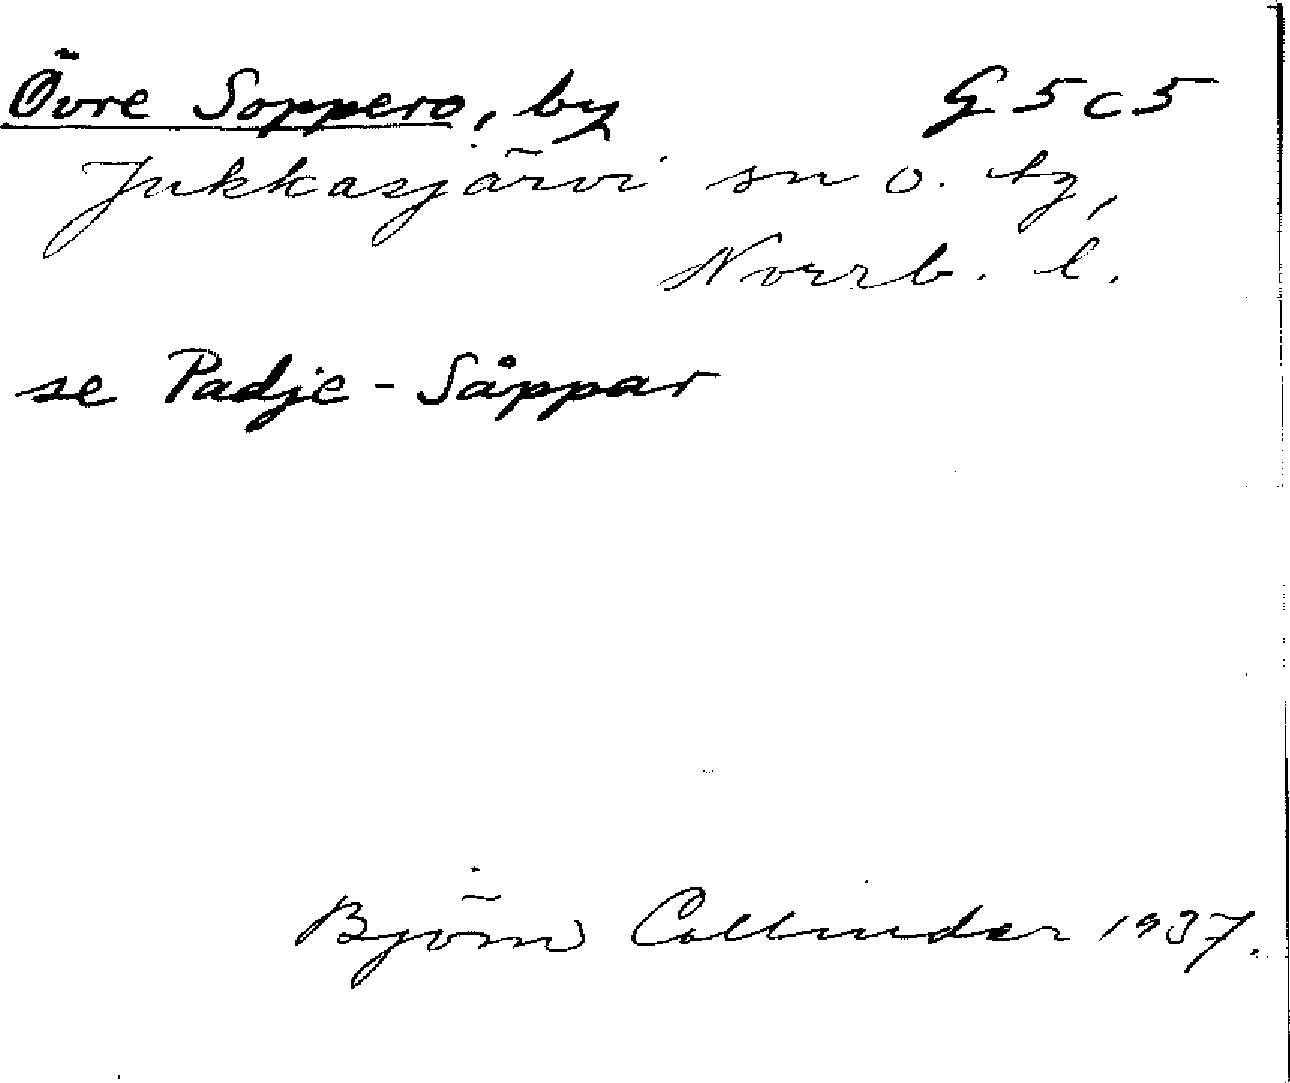 Övre Soppero, by G 5 c 5
Jukkasjärvi sn o. tg,
Norrb. l.
se Padje-Såppar
Björn Collinder 1937.